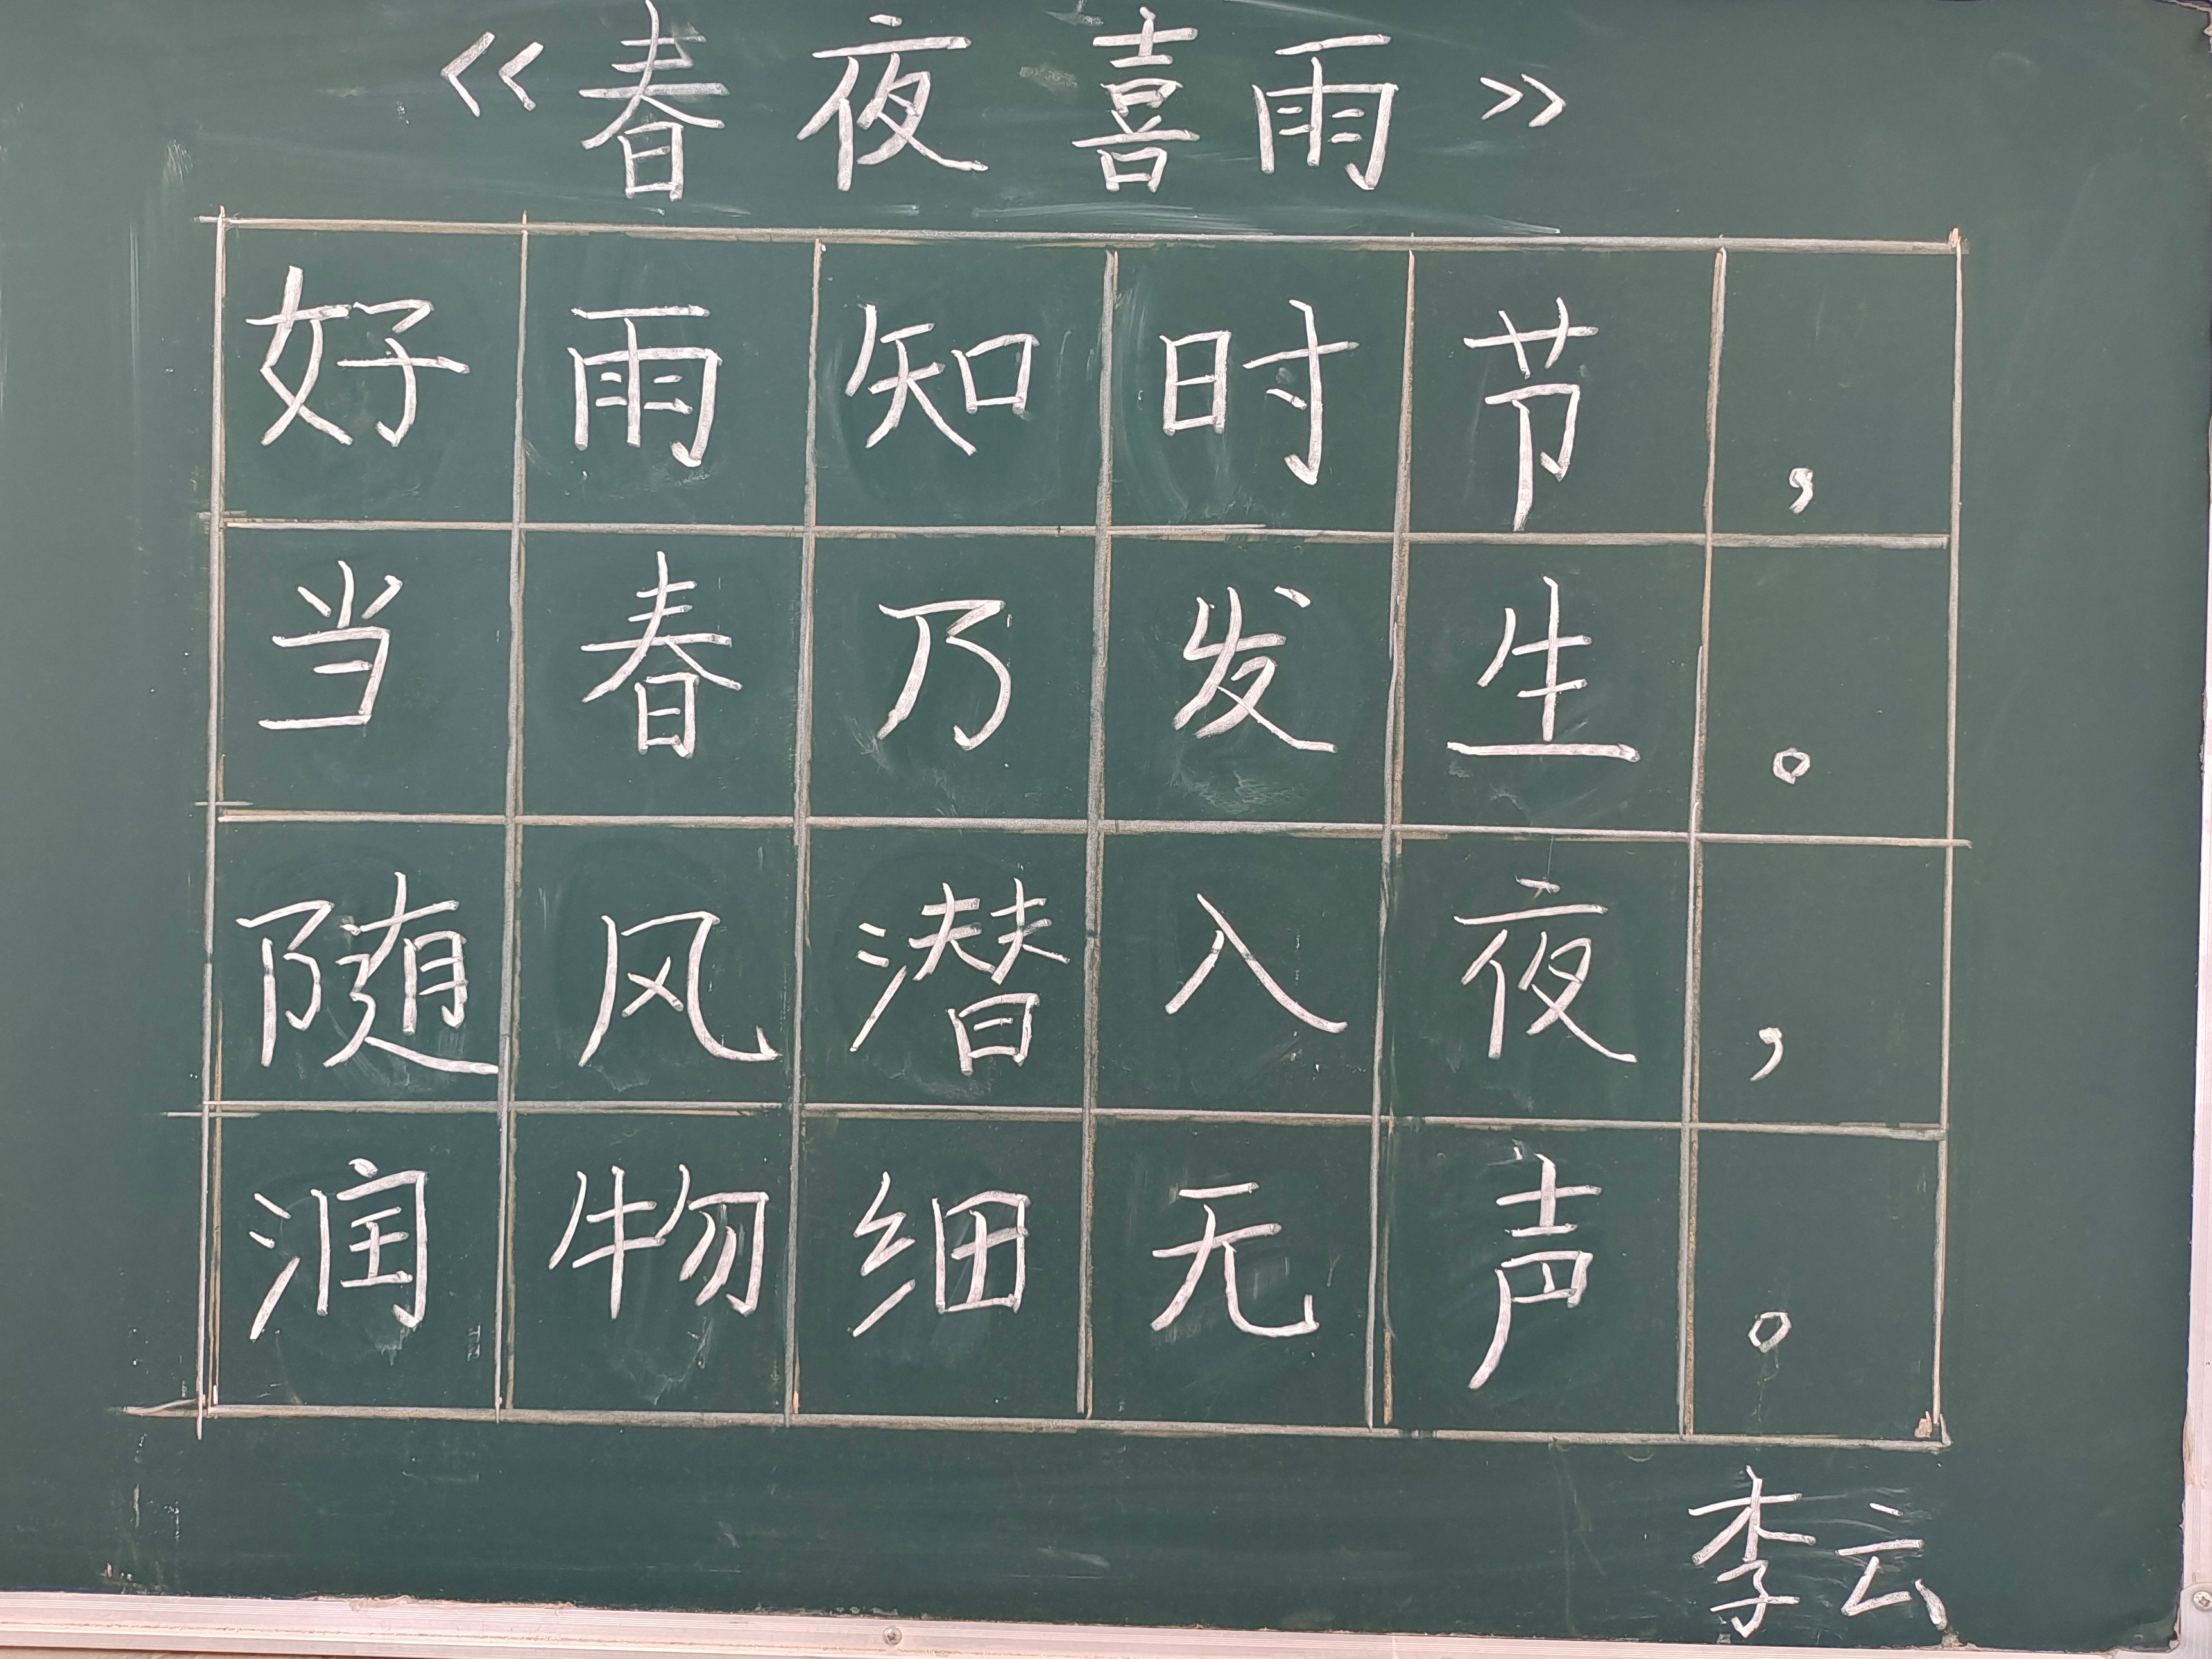 《春夜喜雨》
好雨知时节，
当春乃发生。
随风潜入夜，
润物细无声。
李云